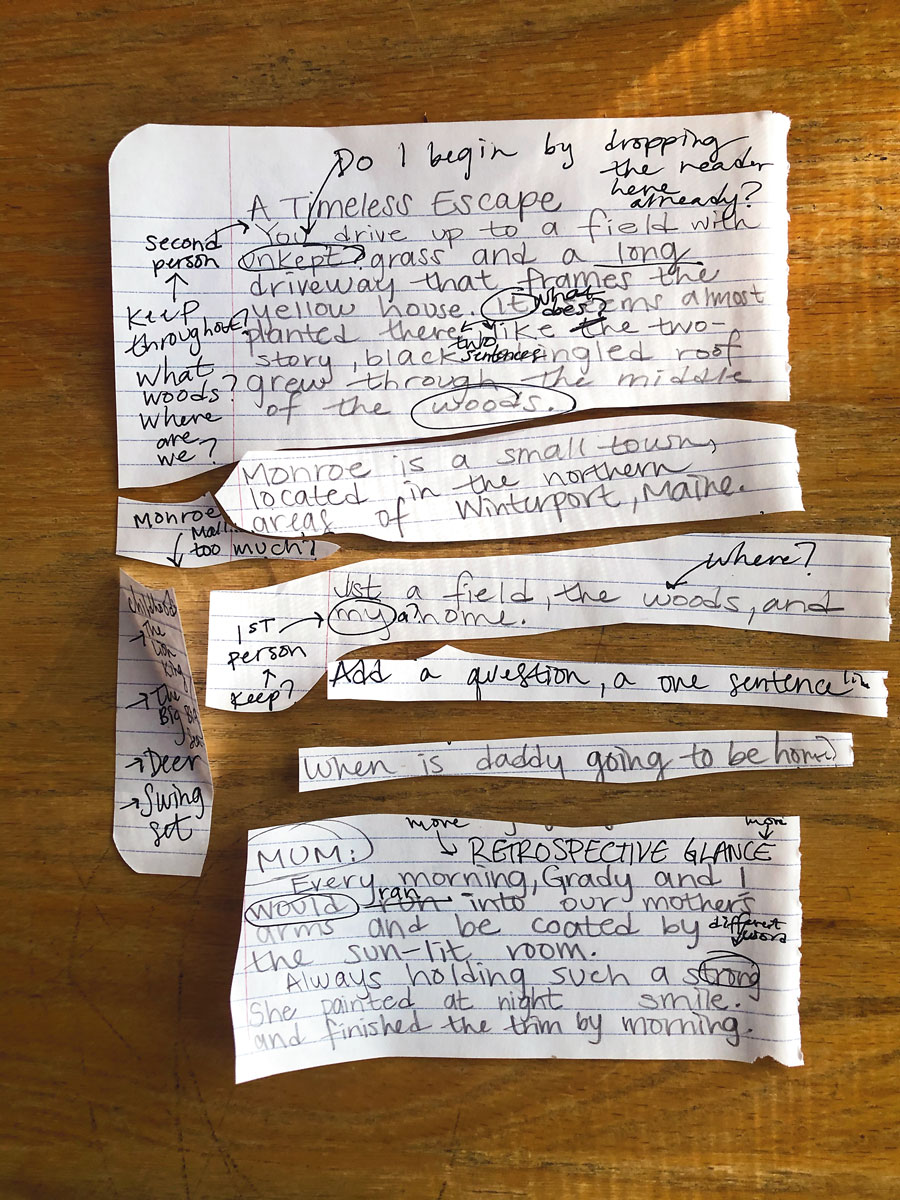 Do I begin by dropping
the reader
here
already?
A Timeless Escape
second
person
Keep
throughout?
what
woods?
where
are
we?
You drive up to a field with
unkept? grass and a long
driveway that frames the
yellow house. It seems almost
what
does?
planted there like the two-
two
sentences
story, black shingled roof
grew through the middle
of the woods.
Monroe is a small town,
located in the northern
areas of Winterport, Maine.
Monroe
too much?
where?
Just a field, the woods, and
my a? home.
1ST
person
Keep?
Add a question, a one sentence
When is daddy going to be home?
childhood
→ The
Lion
King
→ The
Big
→ Deer
→ Swing
set
more
more
MUM:
RETROSPECTIVE GLANCE
Every morning, Grady and I
would run into our mother's
ran
arms and be coated by
different
word
the sun-lit room.
Always holding such a strong
smile.
She painted at night
and finished the trim by morning.